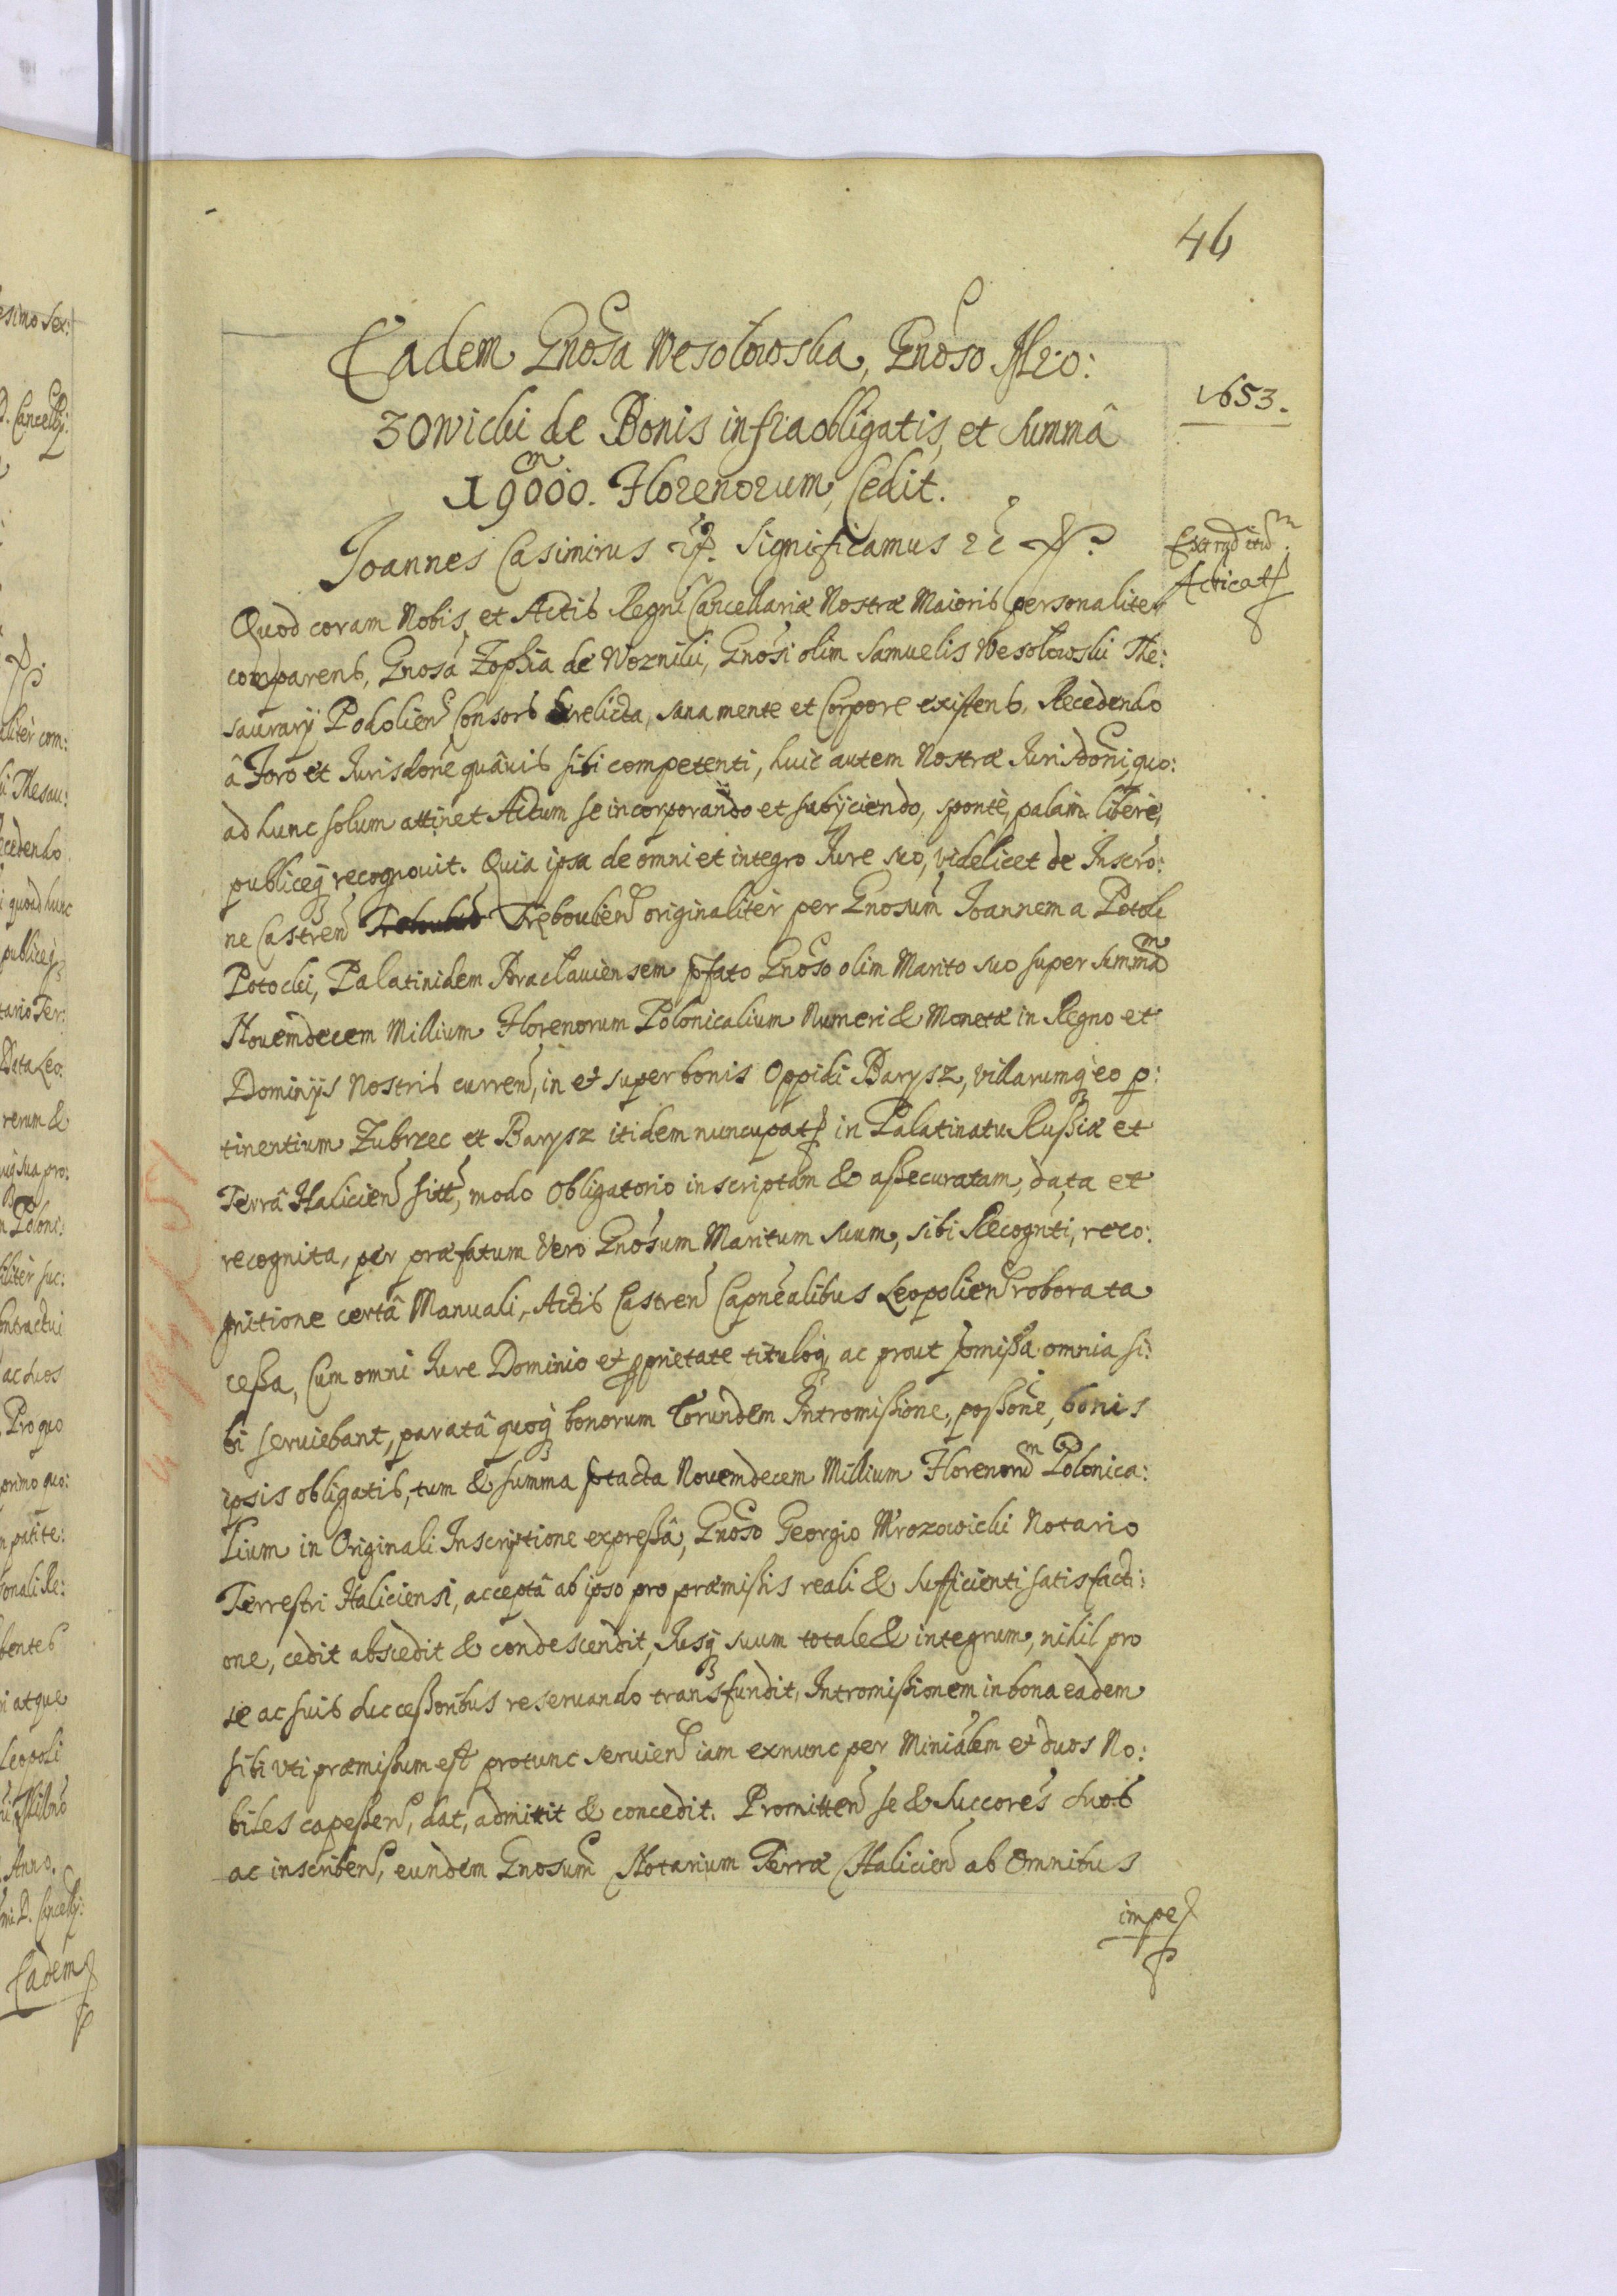 46
Eadem Gnosa Wesolowska, Gnoso Mro:
zowicki de Bonis infra obligatis, et summâ
19000. Florenorum, Cedit.
1653.
Joannes Casimirus Significamus
Extraditum
Acticat
Quod coram Nobis, et Actis Regni Cancellariæ Nostræ Maioris personaliter
comparens, Gnosa Zophia de Woznilii, Gnosi olim Samuelis Wesolowski The:
saurarij Podolien Consors relicta, sana mente et Corpore existens, Recedendo
â Foro et Jurisdone quâuis sibi competenti, huic autem Nostræ Jurisdoni, quo:
ad hunc solum attinet Actum se incorporando et subijciendo, sponte, palam libere,
publiceq recognouit. Quia ipsa de omni et integro Jure suo, videlicet de Inscro:
ne Castren Trębowlien originaliter per Gnosum Joannem a Potok
Potocki, Palatinidem Braclauiensem pfato Gnoso olim Marito suo super summam
Nouemdecem Millium Florenorum Polonicalium Numeri & Monetæ in Regno et
Dominijs Nostris curren, in et super bonis Oppidi Barysz, villarumq eo p:
tinentium Zubrzec et Barysz itidem nuncupat in Palatinatu Russiæ et
Terrâ Halicien sitt, modo Obligatorio inscriptam & assecuratam, data et
recognita, per præfatum vero Gnosum Maritum suum, sibi Recognti, reco:
gnitione certâ Manuali, Actis Castren Capnealibus Leopolien roborata
cessa, Cum omni Jure Dominio et pprietate tituloq, ac prout pmissa omnia si:
bi seruiebant, paratâ quoq bonorum Eorundem Intromissione, possone, bonis
ipsis obligatis, tum & summa ptacta Nouemdecem Millium Florenorum Polonica:
lium in Originali Inscriptione expressâ, Gnoso Georgio Mrozowicki Notario
Terrestri Haliciensi, acceptâ ab ipso pro præmissis reali & sufficienti satisfacti:
one, cedit abscedit & condescendit, Jusq suum totale & integrum, nihil pro
se ac suis successoribus reseruando transfundit, Intromissionem in bona eadem
sibi vti præmissum est protunc seruien iam exnunc per Minialem et duos No:
biles capessen, dat, admittit & concedit. Promitten se & Succores suos
ac inscriben, eundem Gnosum Notarium Terræ Halicien ab Omnibus
impe